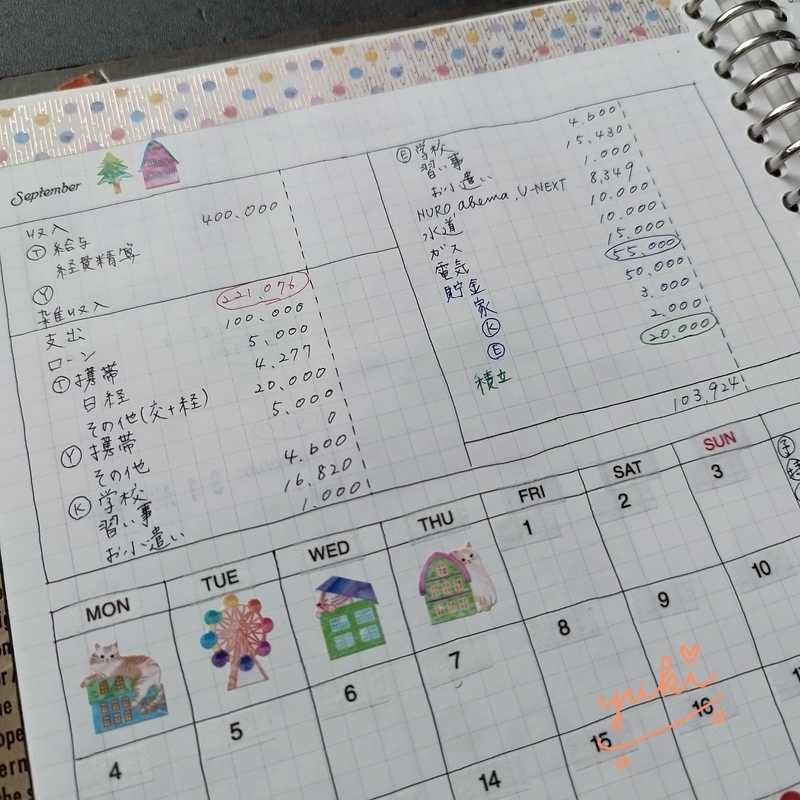 September
収入
Ⓣ 給与 400.000
経費精算
Ⓨ
雑収入
支出 221.076
ローン 100.000
Ⓣ 携帯 5.000
日経 4.277
その他(交+経) 20.000
Ⓨ 携帯 5.000
その他 0
Ⓚ 学校 4.600
習い事 16.820
お小遣い 1.000
Ⓔ 学校 4.600
習い事 15.430
お小遣い 1.000
NURO, abema, U-NEXT 8.349
水道 10.000
ガス 10.000
電気 15.000
貯金 55.000
家 50.000
Ⓚ 3.000
Ⓔ 2.000
積立 20.000
103.924
MON TUE WED THU FRI SAT SUN
1 2 3
4 5 6 7 8 9 10
14 15 16
yuki